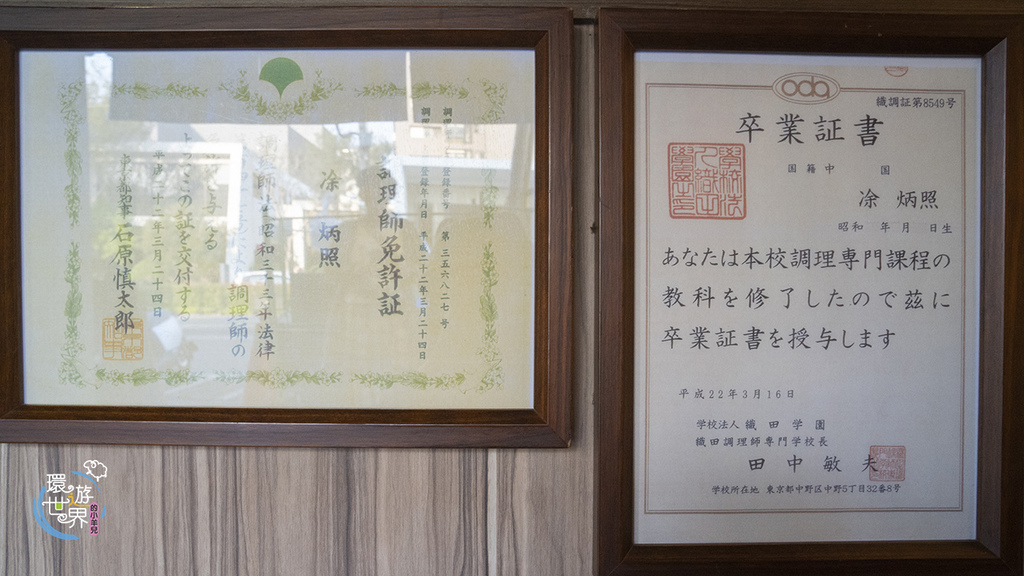 調理師免許証
登録番号 第三五六八二七号
登録年月日 平成二十二年三月二十四日
涂 炳照
調理師法(昭和三十三年法律
調理師の
よつてこの証を交付する
平成二十二年三月二十四日
東京都知事 石原慎太郎
oda
織調証第8549号
卒業証書
国籍 中 国
涂 炳照
昭和 年 月 日生
あなたは本校調理専門課程の
教科を修了したので茲に
卒業証書を授与します
平成22年3月16日
学校法人 織田学園
織田調理師専門学校長
田中敏夫
学校所在地 東京都中野区中野5丁目32番8号
環遊世界
的小羊兒